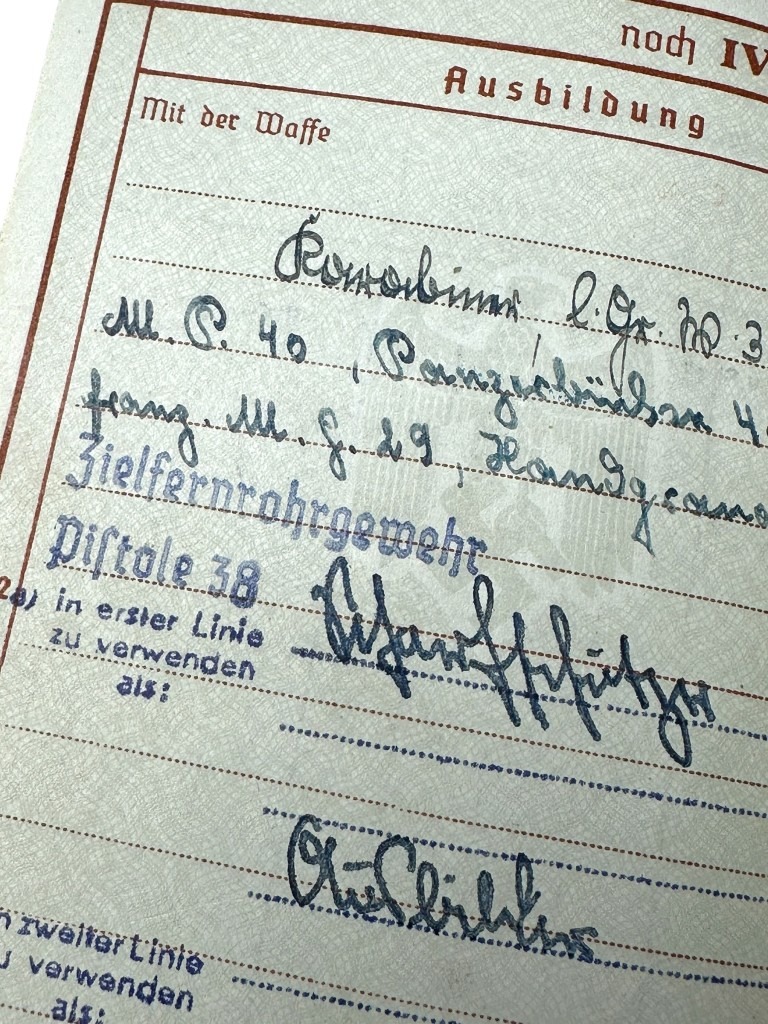 noch IV
Ausbildung
Mit der Waffe
Karabiner, l. Gr. W. 3
M. P. 40, Panzerbüchse 4
franz. M. G. 29, Handgrana
Zielfernrohrgewehr
Pistole 38
2a) in erster Linie
zu verwenden
als:
Scharfschütze
Ausbilder
n zweiter Linie
u verwenden
als: